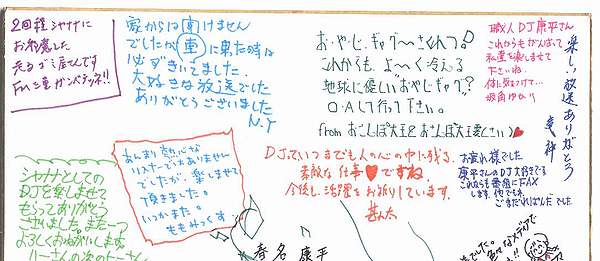 2回程シャナナに
お邪魔した
走るゴミ屋さんです
Fm三重ガンバッテ!!
家からは聞けません
でしたが車に乗た時は
必ずきいてました。
大好きな放送でした
ありがとうございました
N.Y
お・や・じ・ギャグ〜さえてる?
これからも、よ〜く冷える
地球に優しいおやじギャグ?
O.Aして行って下さい。
職人DJ康平さん
これからもがんばって
私達を楽しませて
下さいね。
体に気をつけて…
楽しい放送ありがとう
あんまり熱心な
リスナーではありません
でしたが、楽しませて
頂きました。
いつかまた。
ももみっくす
DJっていつまでも人の心の中に残る、
素敵な仕事♥ですね。
今後も、活躍をお祈りしています。
甚太
お疲れ様でした
康平さんのDJ大好きでる
これからも番組にFAX
します。他でも。
シャナナとしての
DJを楽しませて
もらってありがとう
ございました。また一つ
よろしくおねがいします。
春名 康平